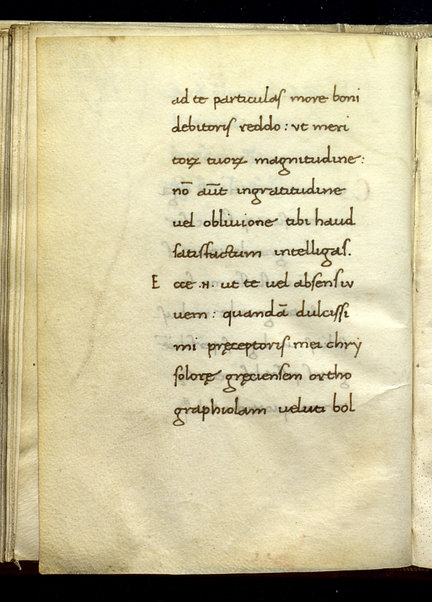 ad te particulaſ more boni
debitoriſ reddo : vt meri
toꝝ tuoꝝ magnitudine :
nō aūt ingratitudine
uel obliuione tibi haud
ſatiſfactum intelligaſ.
E cce .n. ut te uel abſenſ iv
uem : quandā dulciſſi
mi pręceptoriſ mei chry
ſolorę gręcienſem ortho
graphiolam ueluti bol